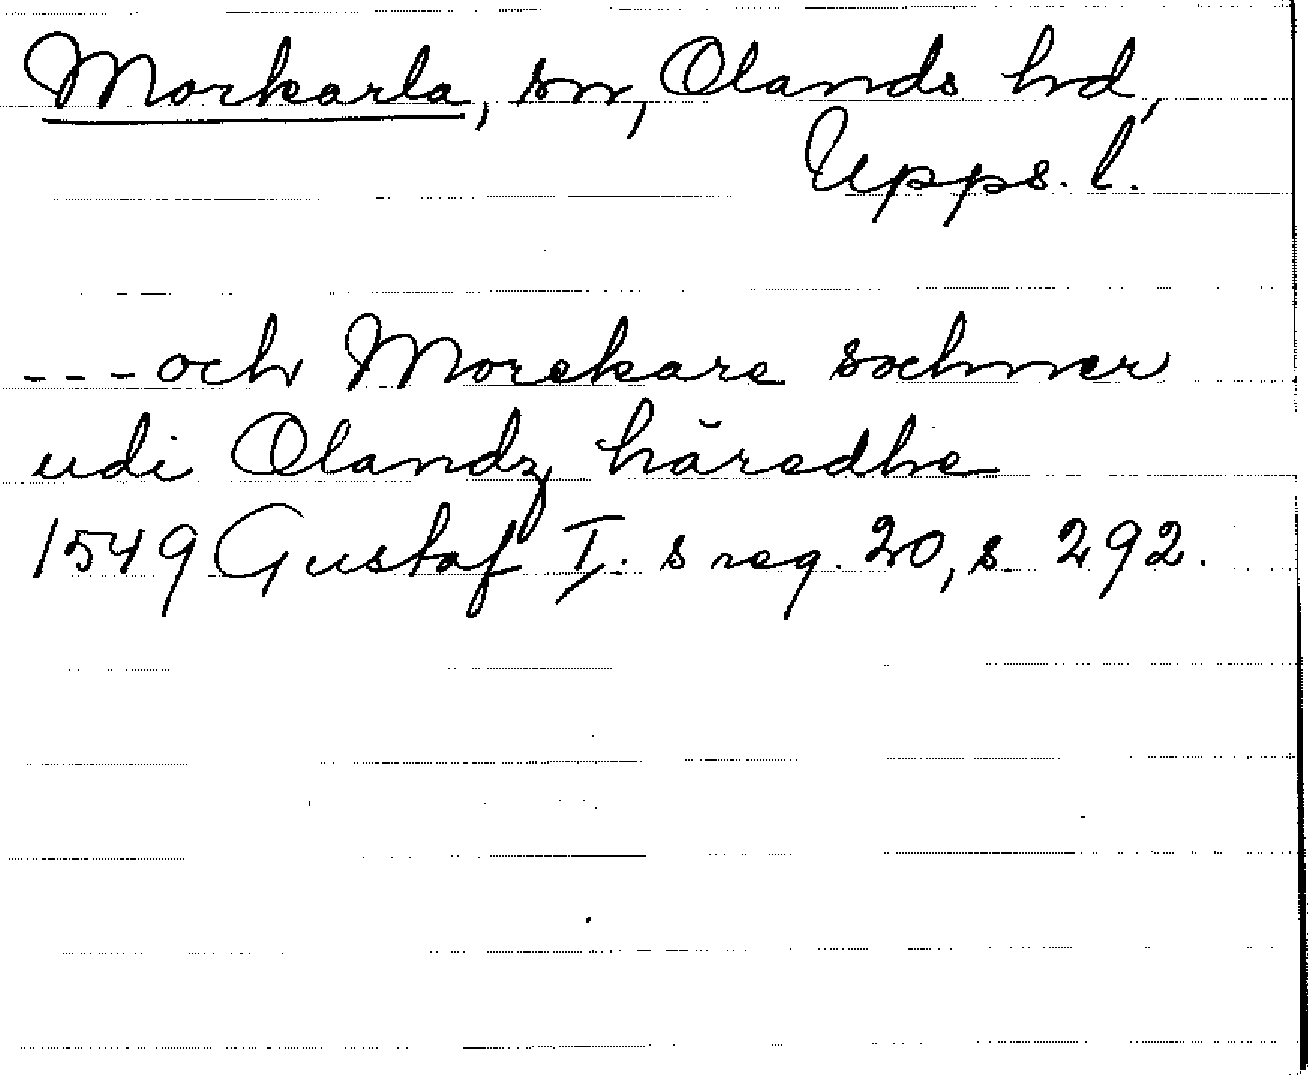 Morkarla, sn, Olands hd,
Upps. l.
---och Morekare sochner
udi Olandz häredhe
1549 Gustaf I. s reg. 20, s. 292.